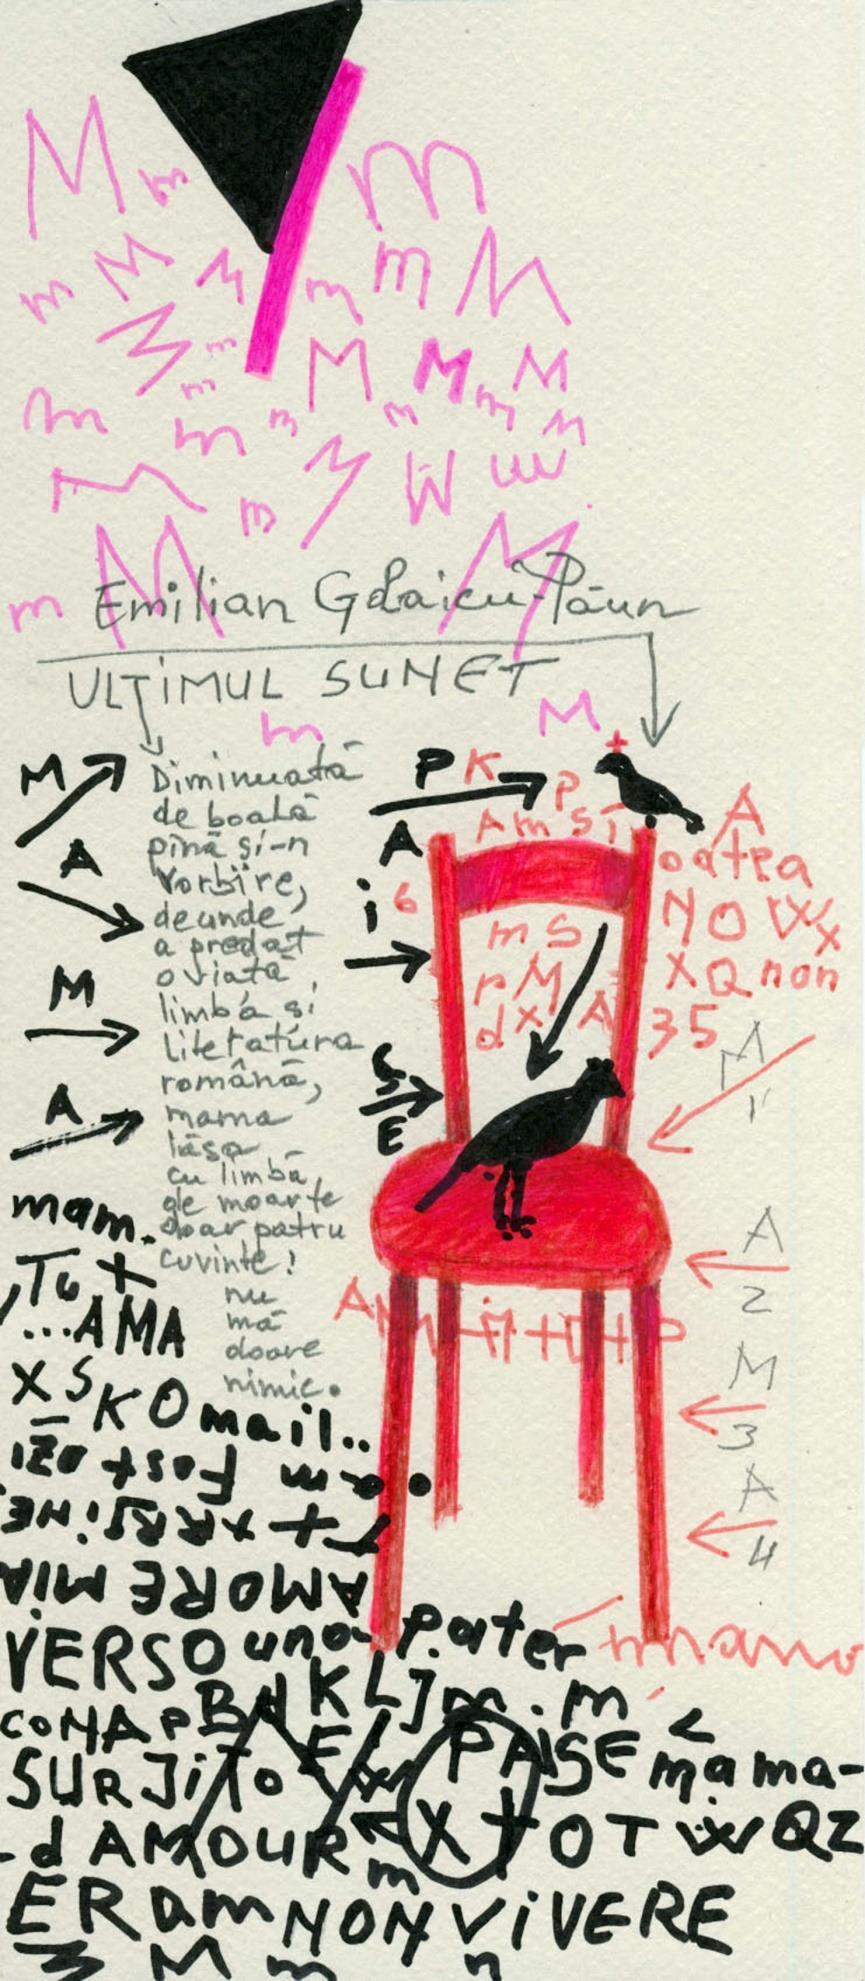 M m m
m M M m m M
M m
m M M M
m m m m m m m
m W w
m M M
m Emilian Galaicu-Păun
ULTIMUL SUNET
m M
M
Diminuată
de boală
pînă și-n
vorbire,
de unde
a predat
o viață
limbă și
literatura
română,
mama
lăsa
cu limbă
de moarte
doar patru
cuvinte:
nu
mă
doare
nimic.
A
M
A
P K P
A
i 6
Am si
m S
r M
d x A
A
oatea
NOWx
XQ non
35
S
E
M
1
A
2
M
3
A
4
mam.
Tu +
...AMA
X S KO mail..
am Fost azi
AMORE MIA
VERSO una pater
mano
CONAP Bd KLJm.m
SURJiTo PAISE mama-
-d AMOUR X + OT W QZ
m
ERam NON ViVERE
M m n